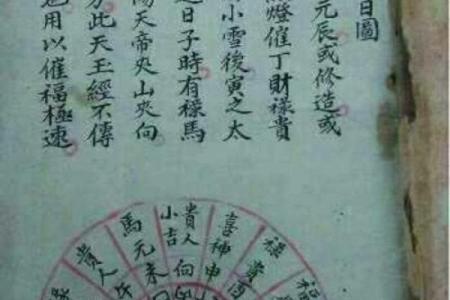 日圖
元辰或修造或
燈催丁財祿貴
小雪後寅之太
日子時有祿馬
陽天帝夾山夾向
此天玉經不傳
用以催福極速
福
祿貴酉
喜神申
貴人向
小吉
馬元未
貴人午